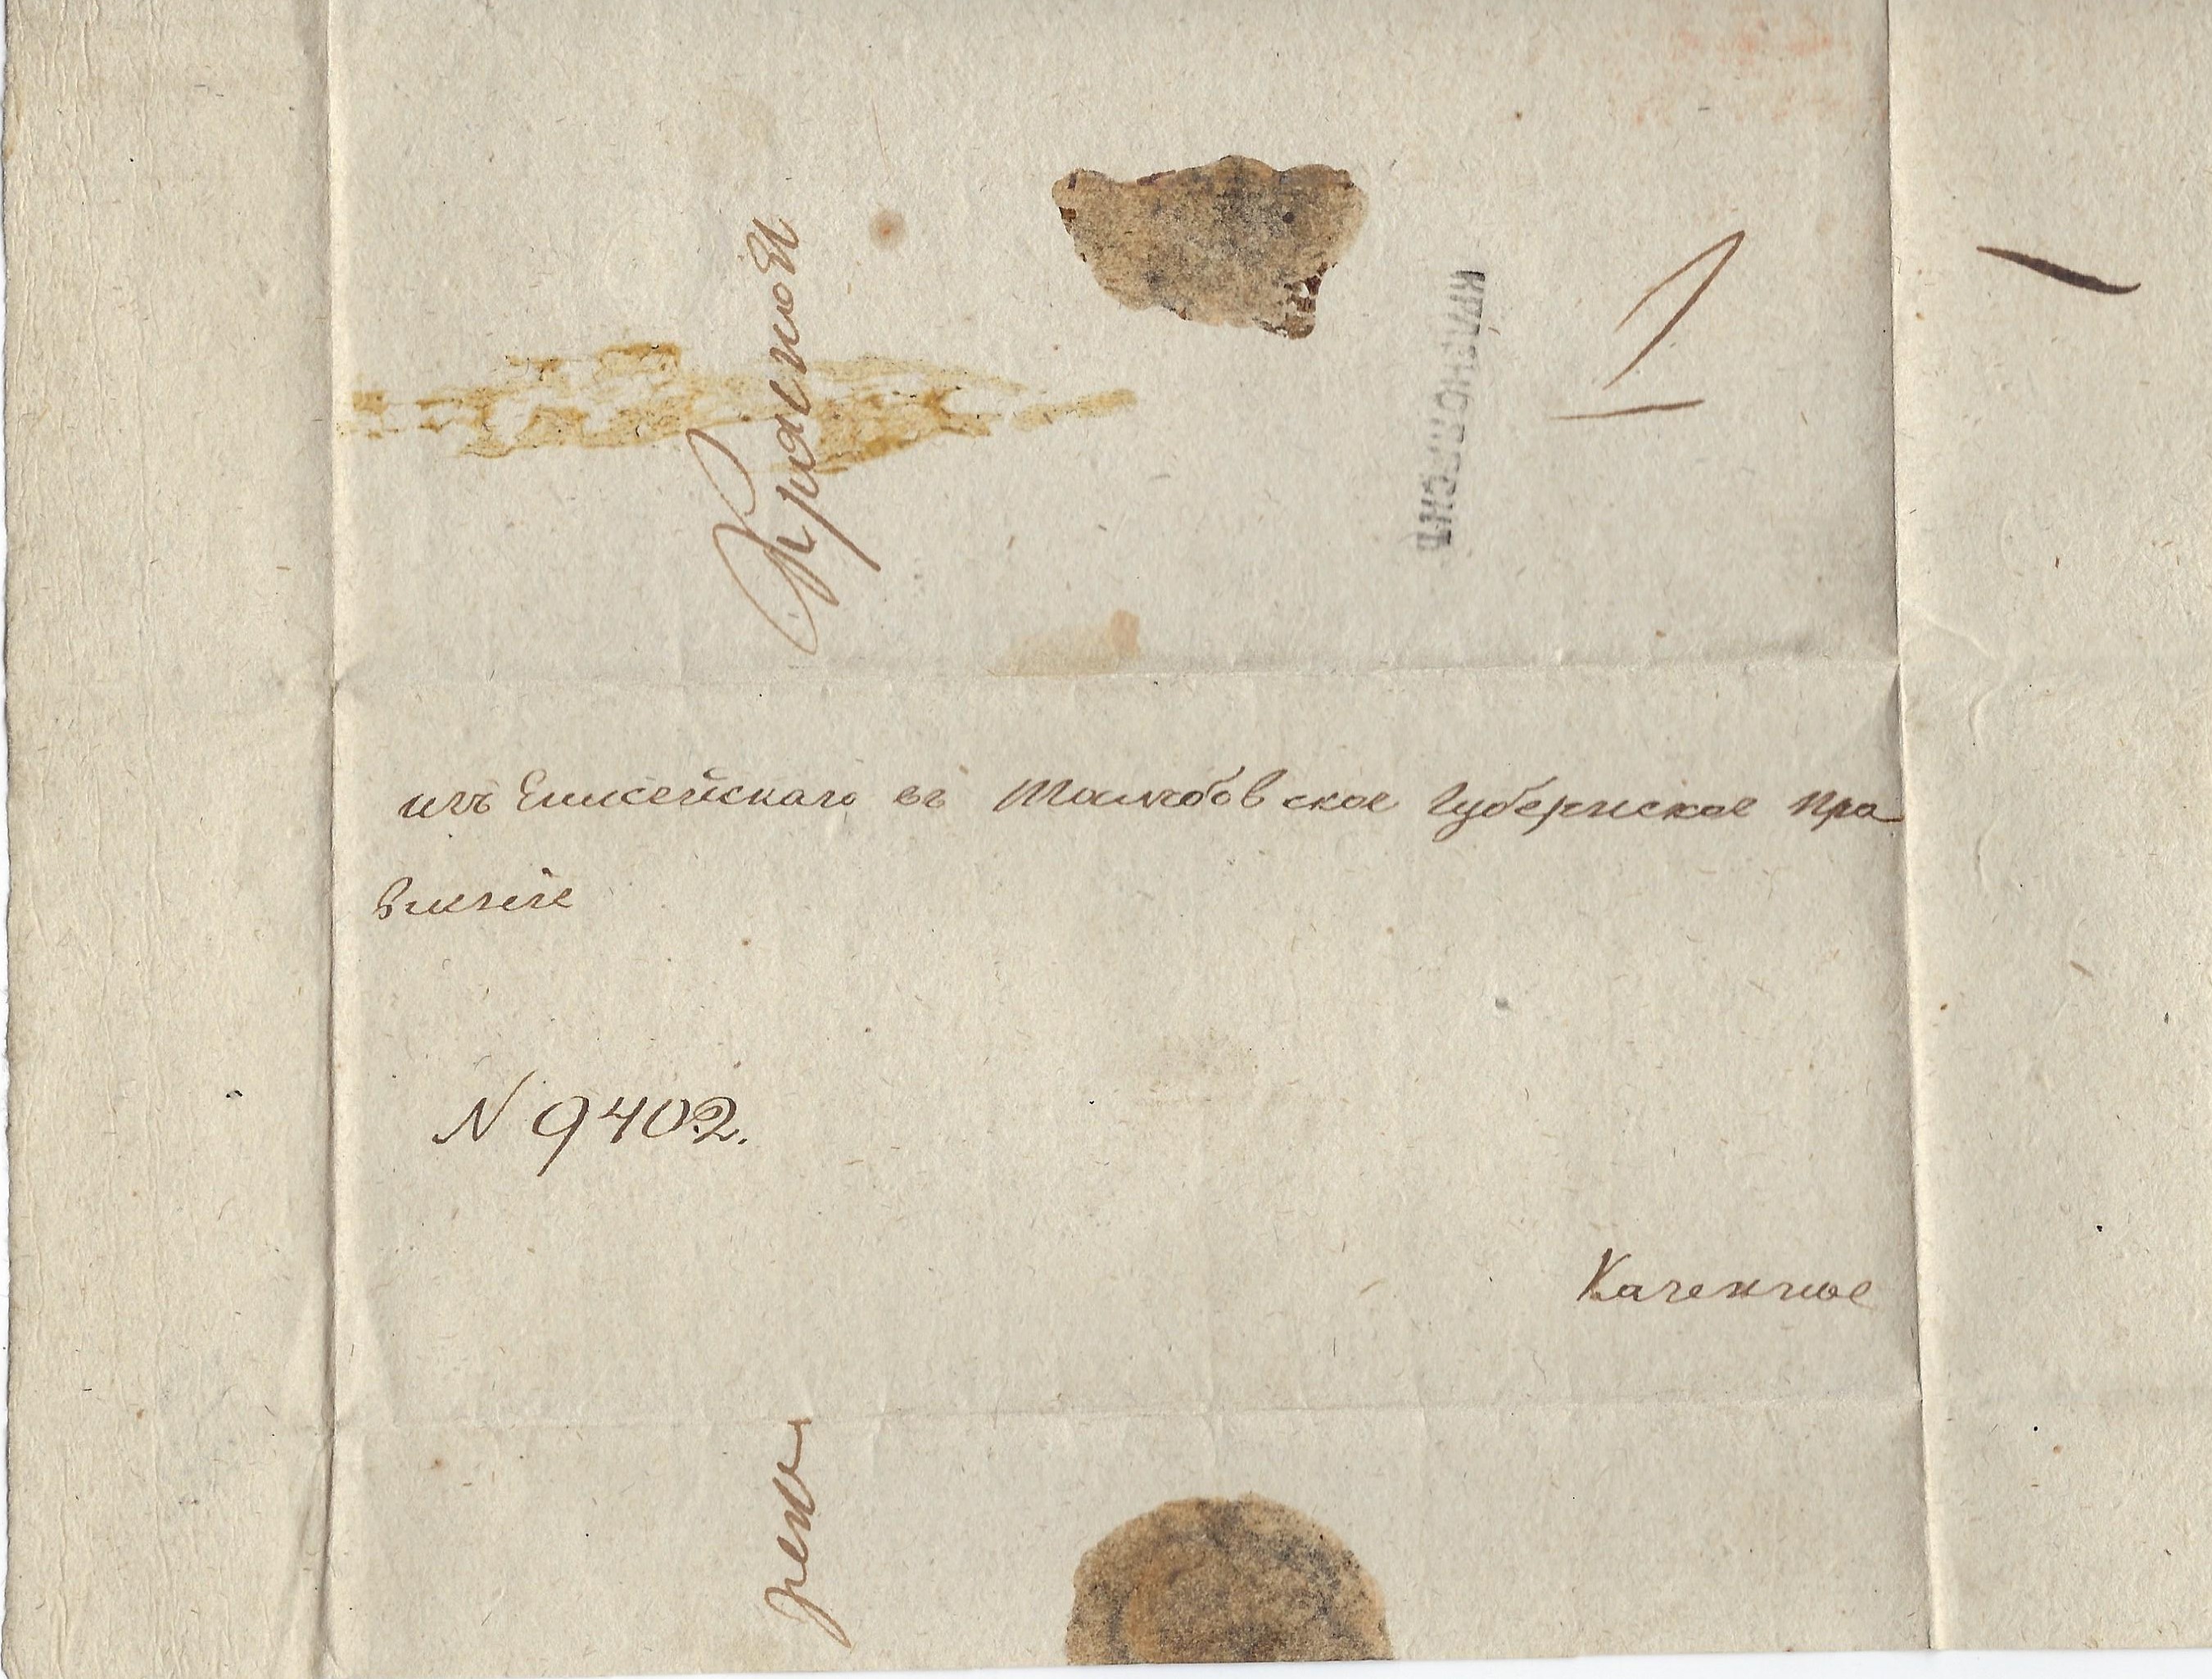 КРАСНОЯРСКЪ
изъ Енисейскаго въ Тамбовское Губернское пра
вленіе
N 9402.
Казенное